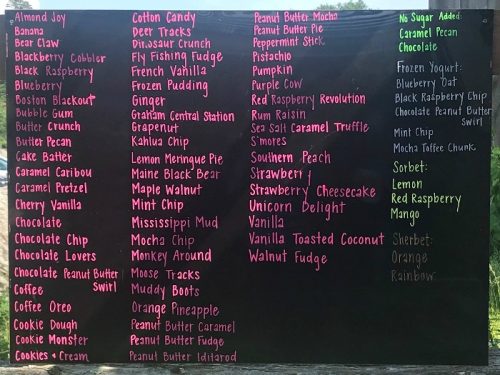 Almond Joy
Banana
Bear Claw
Blackberry Cobbler
Black Raspberry
Blueberry
Boston Blackout
Bubble Gum
Butter Crunch
Butter Pecan
Cake Batter
Caramel Caribou
Caramel Pretzel
Cherry Vanilla
Chocolate
Chocolate Chip
Chocolate Lovers
Chocolate Peanut Butter
Swirl
Coffee
Coffee Oreo
Cookie Dough
Cookie Monster
Cookies + Cream
Cotton Candy
Deer Tracks
Dinosaur Crunch
Fly Fishing Fudge
French Vanilla
Frozen Pudding
Ginger
Graham Central Station
Grapenut
Kahlua Chip
Lemon Meringue Pie
Maine Black Bear
Maple Walnut
Mint Chip
Mississippi Mud
Mocha Chip
Monkey Around
Moose Tracks
Muddy Boots
Orange Pineapple
Peanut Butter Caramel
Peanut Butter Fudge
Peanut Butter Iditarod
Peanut Butter Mocha
Peanut Butter Pie
Peppermint Stick
Pistachio
Pumpkin
Purple Cow
Red Raspberry Revolution
Rum Raisin
Sea Salt Caramel Truffle
S'mores
Southern Peach
Strawberry
Strawberry Cheesecake
Unicorn Delight
Vanilla
Vanilla Toasted Coconut
Walnut Fudge
No Sugar Added:
Caramel Pecan
Chocolate
Frozen Yogurt:
Blueberry Oat
Black Raspberry Chip
Chocolate Peanut Butter
Swirl
Mint Chip
Mocha Toffee Chunk
Sorbet:
Lemon
Red Raspberry
Mango
Sherbet:
Orange
Rainbow